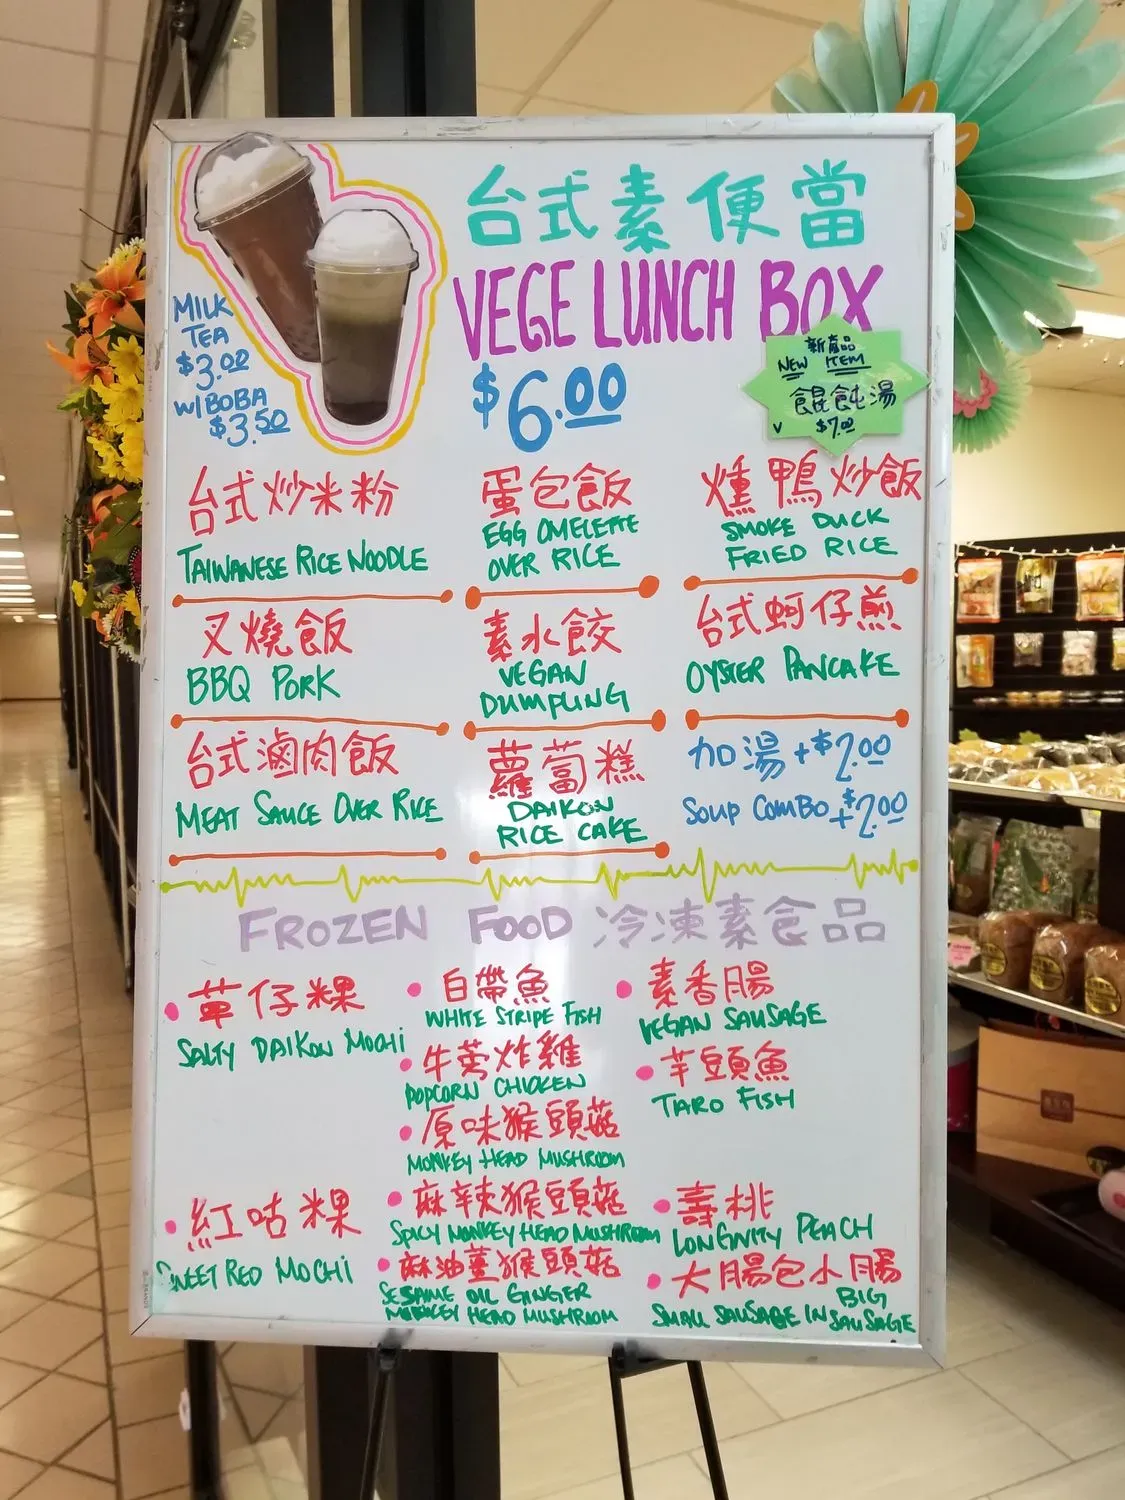 台式素便當
VEGE LUNCH BOX
$6.00
MILK
TEA
$3.00
W/BOBA
$3.50
新產品
NEW ITEM
餛飩湯
$7.00
台式炒米粉
TAIWANESE RICE NOODLE
蛋包飯
EGG OMELETTE
OVER RICE
燻鴨炒飯
SMOKE DUCK
FRIED RICE
叉燒飯
BBQ PORK
素水餃
VEGAN
DUMPLING
台式蚵仔煎
OYSTER PANCAKE
台式滷肉飯
MEAT SAUCE OVER RICE
蘿蔔糕
DAIKON
RICE CAKE
加湯 +$2.00
SOUP COMBO +$2.00
FROZEN FOOD 冷凍素食品
草仔粿
SALTY DAIKON MOCHI
紅咕粿
SWEET RED MOCHI
白帶魚
WHITE STRIPE FISH
牛蒡炸雞
POPCORN CHICKEN
原味猴頭菇
MONKEY HEAD MUSHROOM
麻辣猴頭菇
SPICY MONKEY HEAD MUSHROOM
麻油薑猴頭菇
SESAME OIL GINGER
MONKEY HEAD MUSHROOM
素香腸
VEGAN SAUSAGE
芋頭魚
TARO FISH
壽桃
LONGIVITY PEACH
大腸包小腸
BIG
SMALL SAUSAGE IN SAUSAGE